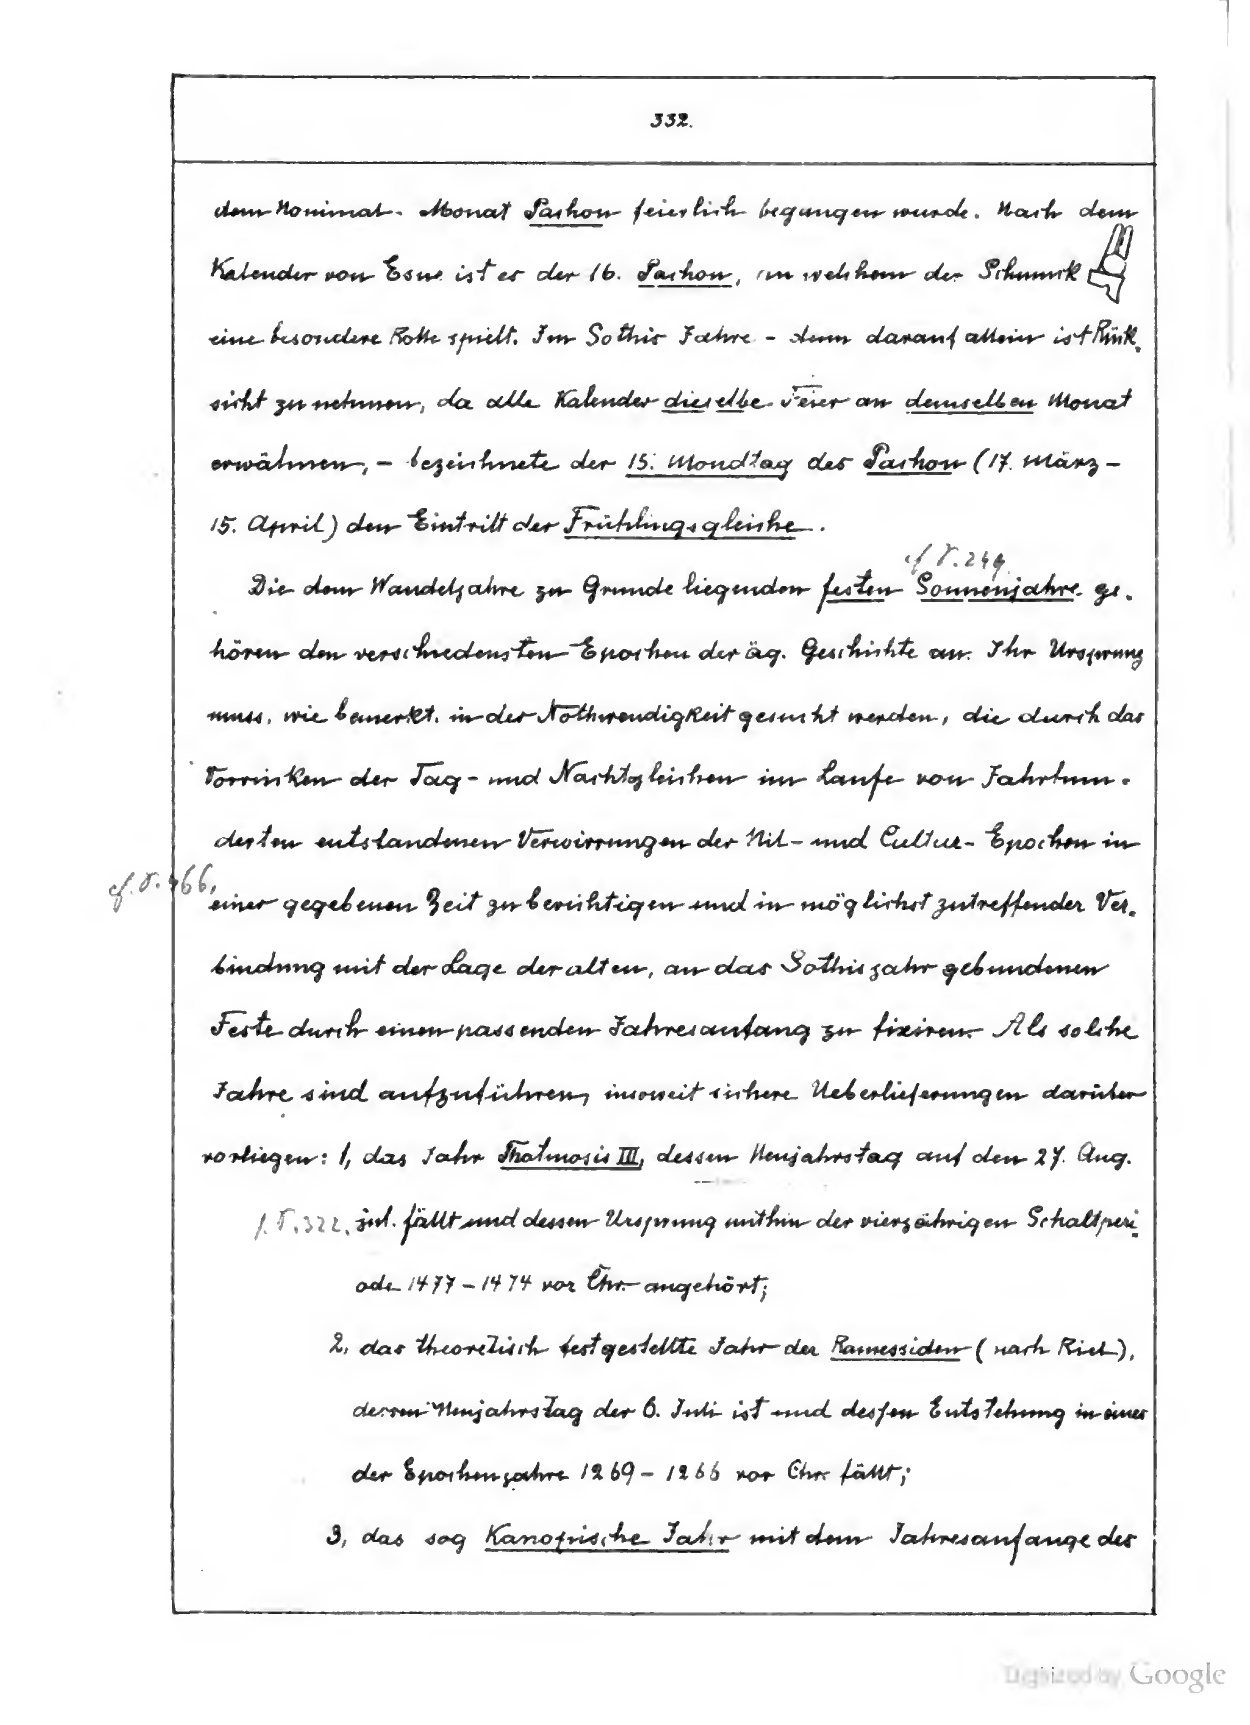 332.
dem Nominal-Monat Pachon feierlich begangen wurde. Nach dem
Kalender von Esne ist es der 16. Pachon, an welchem der Schmuck
eine besondere Rolle spielt. Im Sothis Jahre - denn darauf allein ist Rück,
sicht zu nehmen, da alle Kalender dieselbe Feier an demselben Monat
erwähnen, - bezeichnete der 15. Mondtag des Pachon (17. März -
15. April) den Eintritt der Frühlingsgleiche.
cf S. 249.
Die dem Wandeljahre zu Grunde liegenden festen Sonnenjahre ge-
hören den verschiedensten Epochen der äg. Geschichte an. Ihr Ursprung
muss, wie bemerkt, in der Nothwendigkeit gesucht werden, die durch das
Vorrücken der Tag- und Nachtgleichen im Laufe von Jahrhun-
derten entstandenen Verwirrungen der Nil- und Cultur-Epochen in
cf. S. 466,
einer gegebenen Zeit zu berichtigen und in möglichst zutreffender Ver-
bindung mit der Lage der alten, an das Sothisjahr gebundenen
Feste durch einen passenden Jahresanfang zu fixiren. Als solche
Jahre sind aufzuführen, insoweit sichere Ueberlieferungen darüber
vorliegen: 1, das Jahr Thotmosis III, dessen Neujahrstag auf den 27. Aug.
S. 322. jul. fällt und dessen Ursprung mithin der vierjährigen Schaltperi-
ode 1477-1474 vor Chr. angehört;
2, das theoretisch festgestellte Jahr der Ramessiden (nach Riel),
deren Neujahrstag der 6. Juli ist und dessen Entstehung in einer
der Epochenjahre 1269-1266 vor Chr. fällt;
3, das sog Kanopische Jahr mit dem Jahresanfange des
Digitized by Google